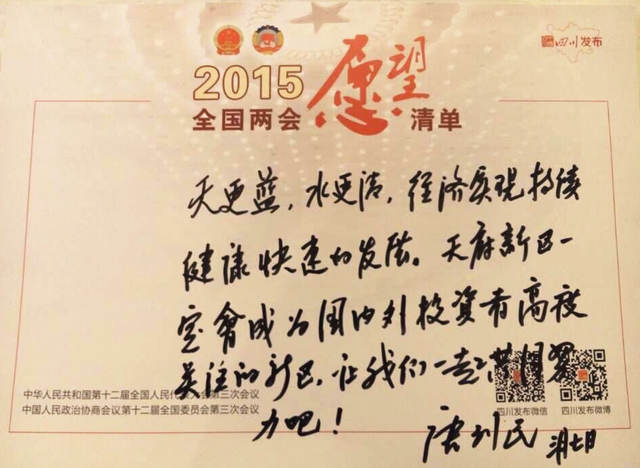 四川发布
2015
全国两会愿望清单
天更蓝，水更清，经济实现持续
健康快速的发展。天府新区一
定会成为国内外投资者高度
关注的新区，让我们一起共同努
力吧！
唐利民 三月七日
中华人民共和国第十二届全国人民代表大会第三次会议
中国人民政治协商会议第十二届全国委员会第三次会议
四川发布微信
四川发布微博